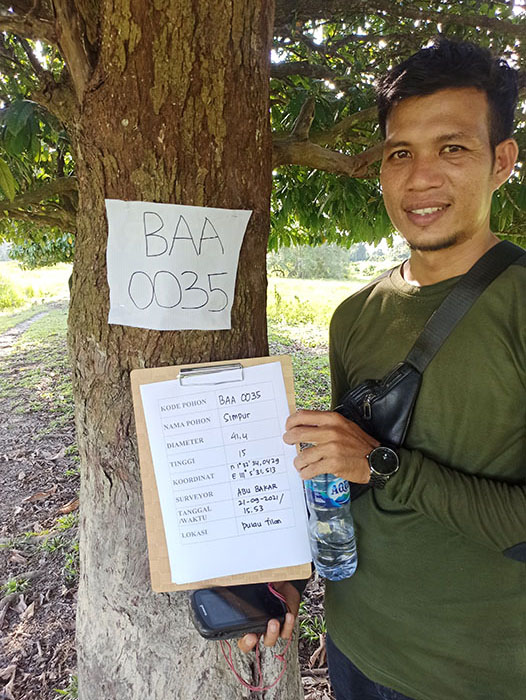 BAA
0035
KODE POHON BAA 0035
NAMA POHON Simpur
DIAMETER 41,4
TINGGI 15
KOORDINAT N 1° 32' 34,0429
E 111° 5' 31,513
SURVEYOR ABU BAKAR
TANGGAL 21-09-2021/
/WAKTU 15.53
LOKASI Pulau tilan